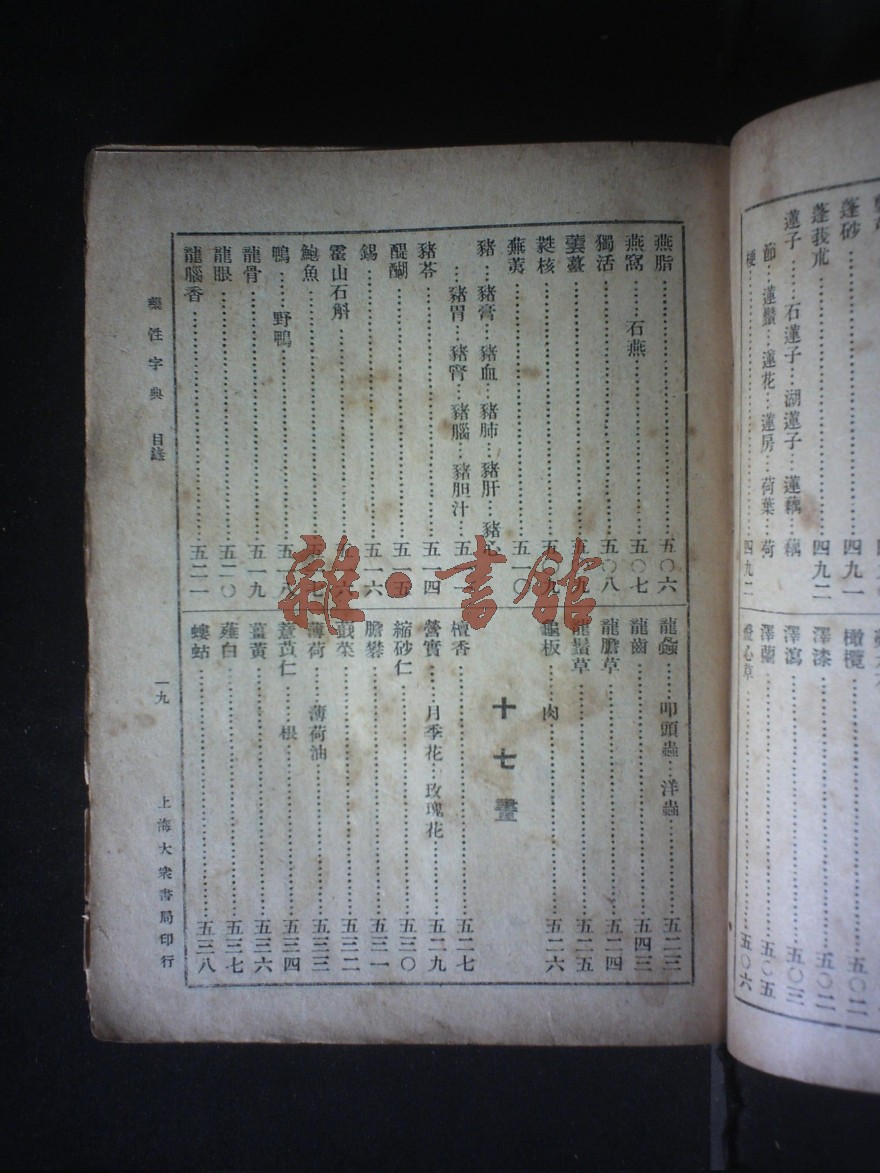 蓬砂……四九一
蓬莪朮……四九二
蓮子……石蓮子…湖蓮子…蓮藕…藕
節…蓮鬚…蓮花…蓮房…荷葉…荷
梗……四九二
橄欖……五〇二
澤漆……五〇二
澤瀉……五〇三
澤蘭……五〇五
燈心草……五〇六
燕脂……五〇六
燕窩…石燕……五〇七
獨活……五〇八
蕓薹……五〇九
蕤核……五〇九
蕪荑……五一〇
豬…豬膏…豬血…豬肺…豬肝…豬心
…豬胃…豬腎…豬腦…豬胆汁……五一一
豬苓……五一四
醍醐……五一五
錫……五一六
霍山石斛……五一六
鮑魚……五一七
鴨……野鴨……五一八
龍骨……五一九
龍眼……五二〇
龍腦香……五二一
龍蝨…叩頭蟲…洋蟲……五二三
龍齒……五四三
龍膽草……五二四
龍鬚草……五二五
龜板…肉……五二六
十七畫
檀香……五二七
營實…月季花…玫瑰花……五二九
縮砂仁……五三〇
膽礬……五三一
蕺菜……五三二
薄荷…薄荷油……五三三
薏苡仁…根……五三四
薑黃……五三六
薤白……五三七
螻蛄……五三八
藥性字典 目錄
一九
上海大衆書局印行
雜·書館